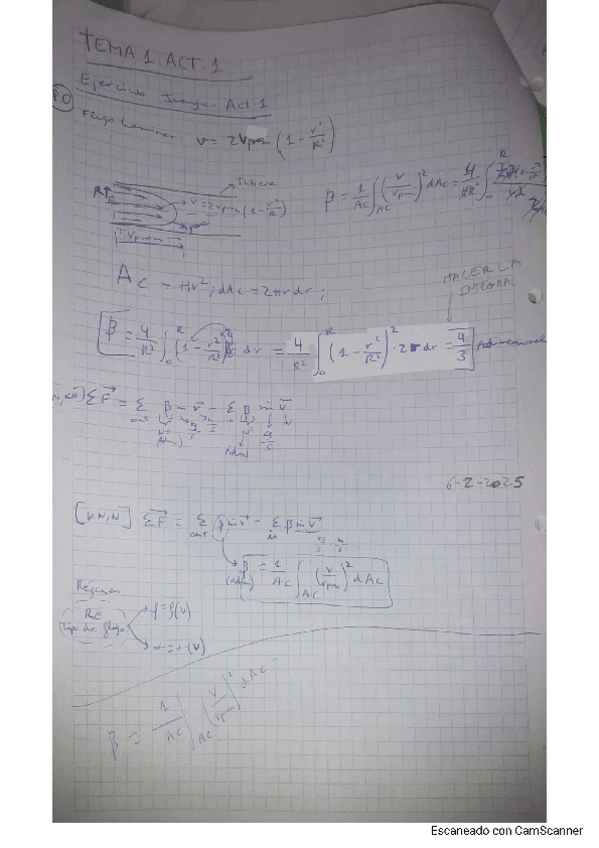 TEMA 1: ACT. 1
Ejercicio Act. 1
Flujo Laminar v = 2Vprom (1 - r²/R²)
Tubería
v = 2Vprom (1 - r²/R²)
Vprom
β = 1/Ac ∫Ac (V/Vprom)² dAc = 4/πR² ∫₀ᴿ
Ac = πr²; dAc = 2πr dr;
HACER LA
INTEGRAL
β = 4/R² ∫₀ᴿ (1 - r²/R²)² dr = 4/R² ∫₀ᴿ (1 - r²/R²)² · 2r dr = 4/3 Adimensional
ΣF = Σ β ṁ v - Σ β ṁ v
out in
6-2-2025
[kN, N] ΣF = Σ β ṁ v - Σ β ṁ v
out in
kg/s · m/s
β = 1/Ac ∫Ac (V/Vprom)² dAc
(Adim)
Régimen
Re
Tipo de flujo
β = β(v)
α = α(v)
β = 1/Ac ∫Ac (V/Vprom)² dAc
Escaneado con CamScanner